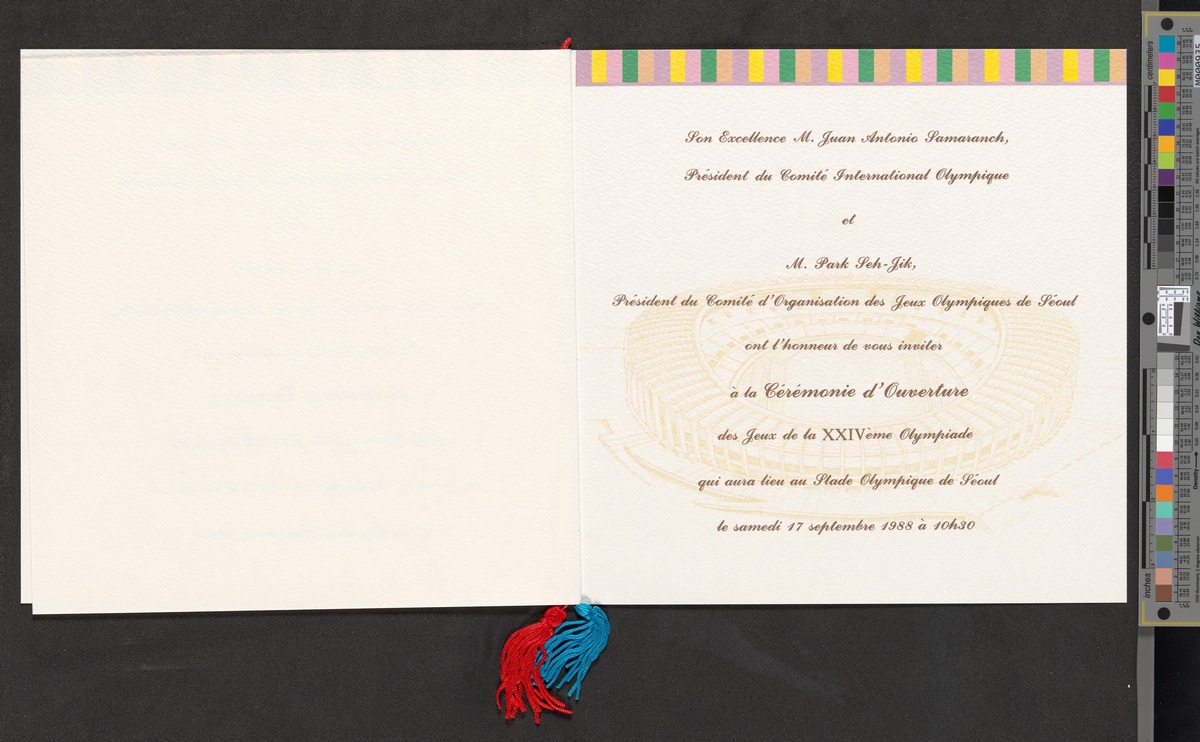 Son Excellence M. Juan Antonio Samaranch,
Président du Comité International Olympique
et
M. Park Seh-Jik,
Président du Comité d'Organisation des Jeux Olympiques de Séoul
ont l'honneur de vous inviter
à la Cérémonie d'Ouverture
des Jeux de la XXIVème Olympiade
qui aura lieu au Stade Olympique de Séoul
le samedi 17 septembre 1988 à 10h30
centimeters
inches